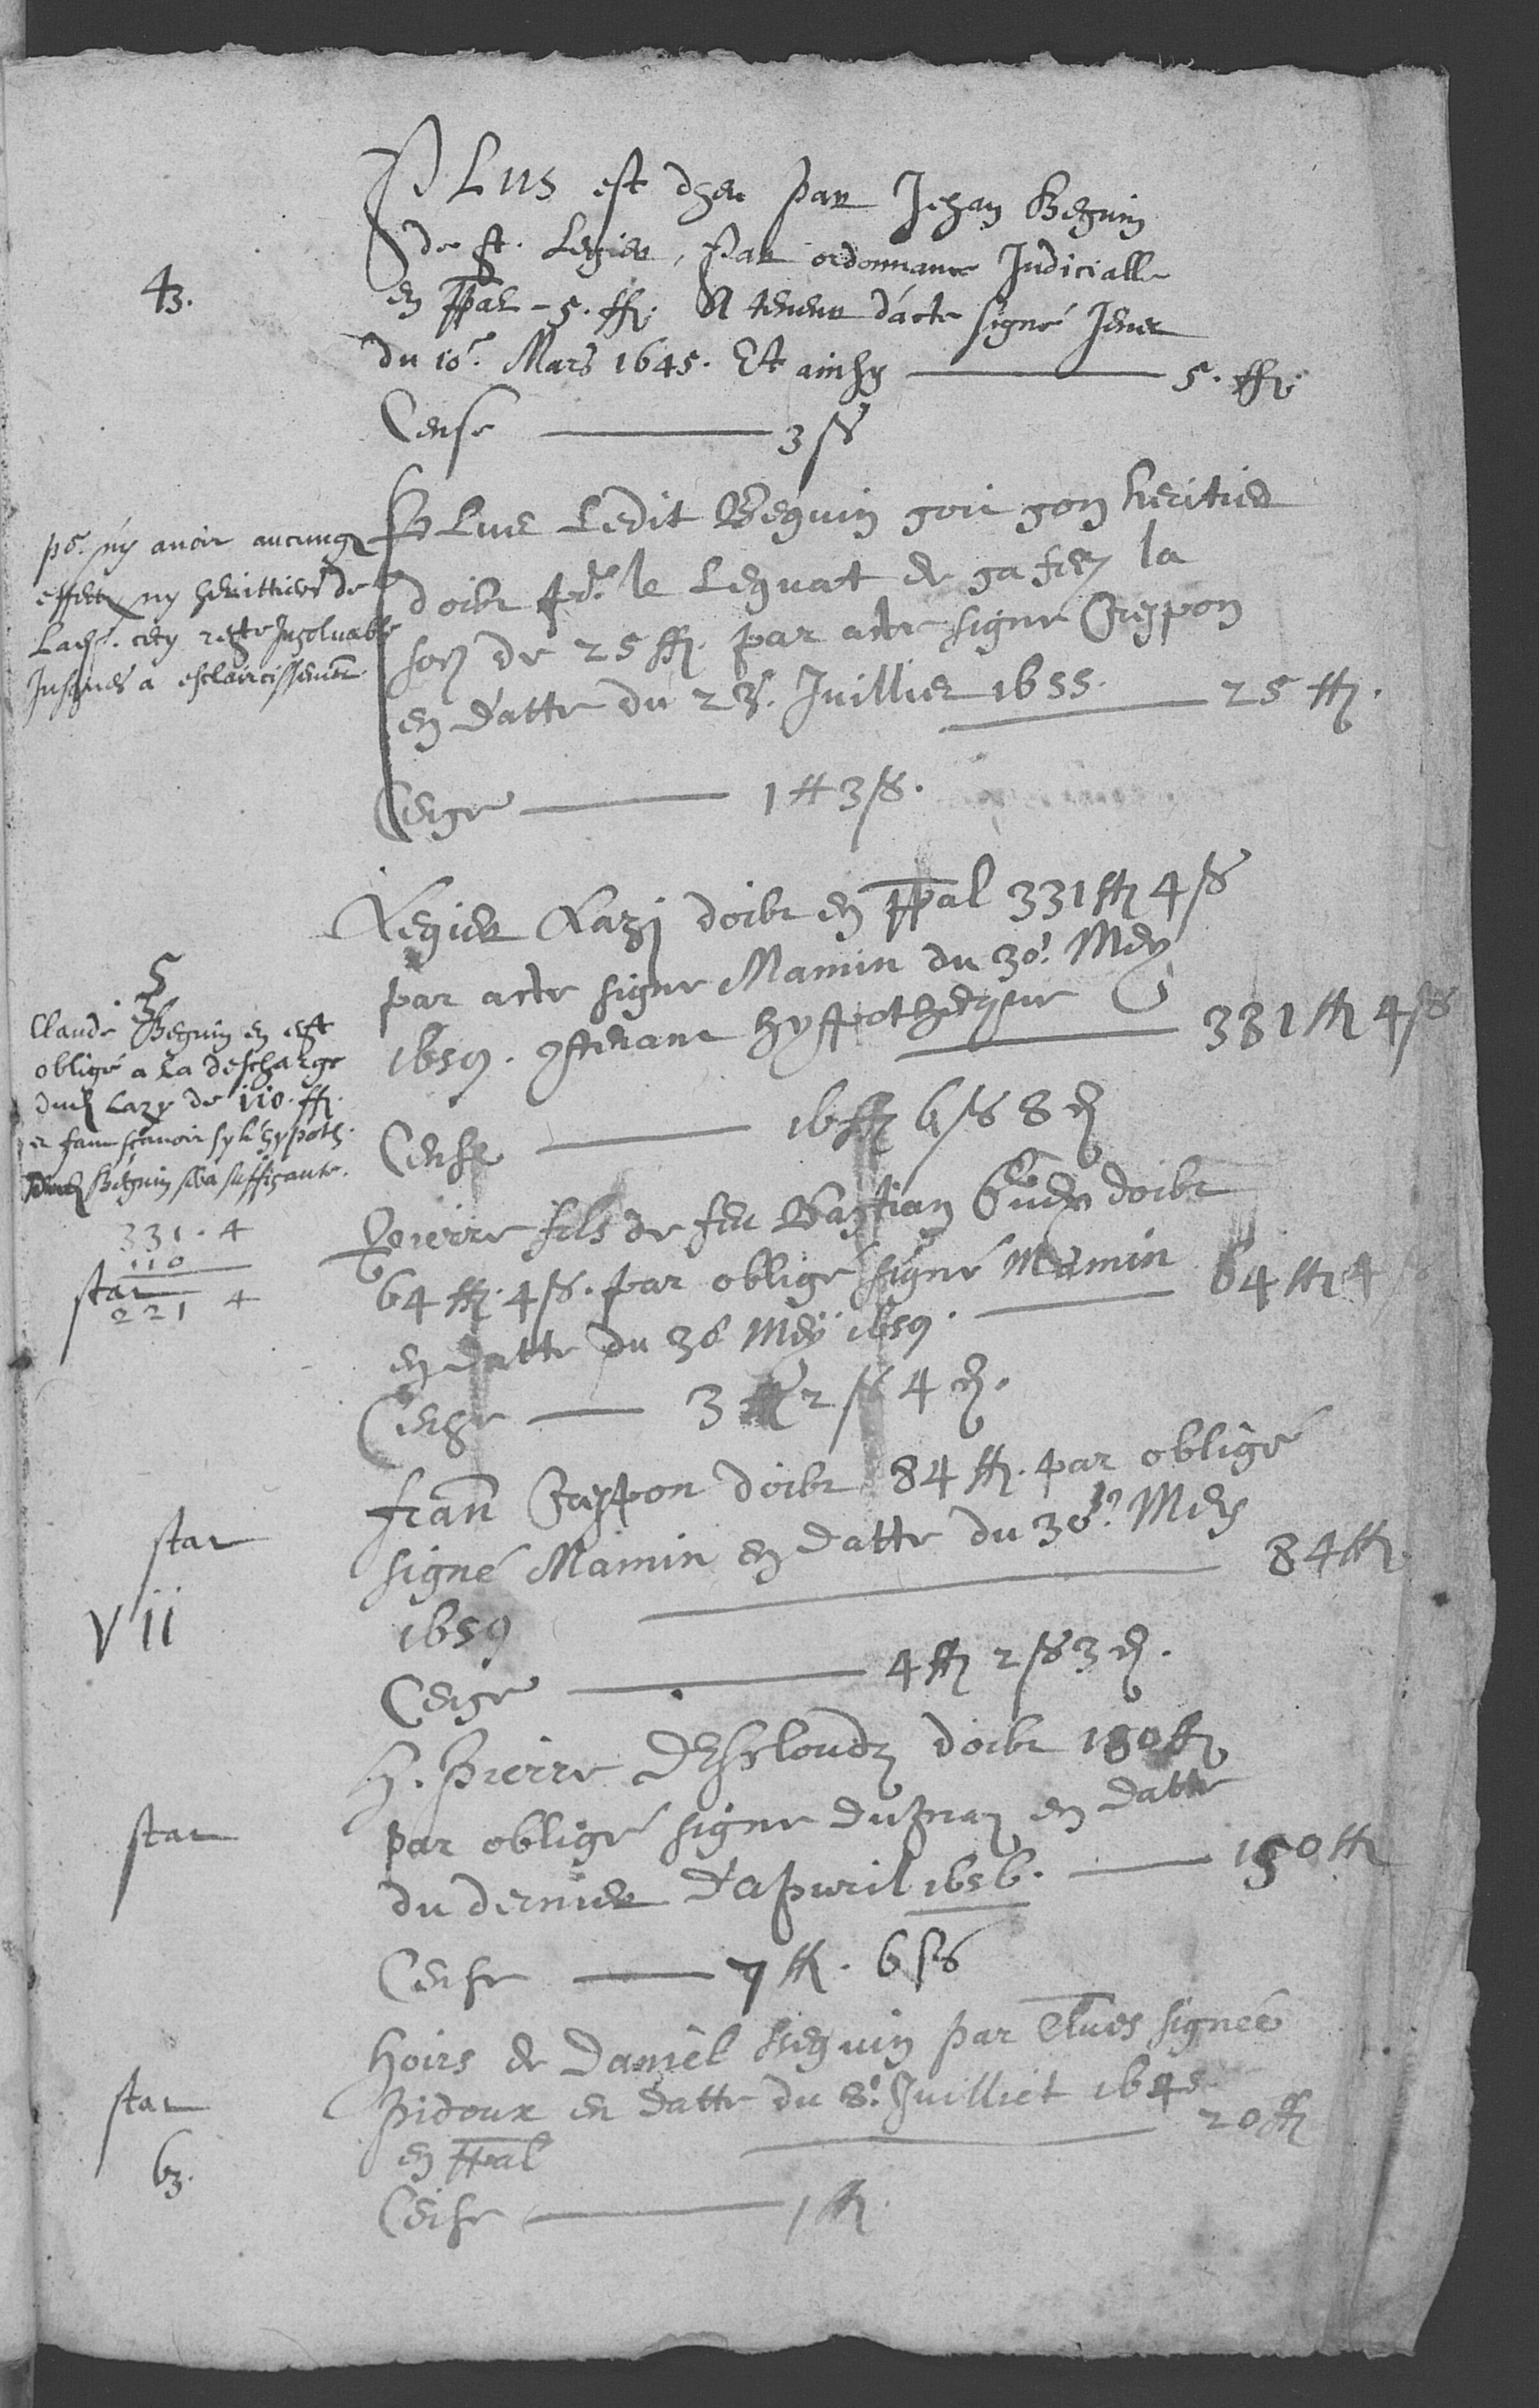 PLus est dheu par Jehan Beguin
de st. Legier, Par ordonnance Judicialle
4z.
en ppal - 5. ff. A teneur d'acte signé Jener
du 10e. Mars 1645. Et ainsy 5. ff
Cense 3 ss
PLus Ledit Beguin soit son heritier
doibt le Leguat de sa fem la
so&#772; de 25 ff. par acte signe Crespon
en datte du 28. Juillier 1655. 25 ff.
Cense 1 ff 3 ss.
po. n'y avoir aucungs
effects ny herittiers de
Lads. cecy reste Insolvable
Jusques a esclaircissement
Legier Lazj doibt en ppal 331 ff 4 ss
par acte signe Mamin du 30e. Mey
1659. hyppothecque 331 ff 4 ss
Cense 16 ff 6 ss 8 d
5
Claude Beguin en est
obligé a la descharge
dud Lazy de 110. ff.
et faut scavoir sy l'hypoth.
dud Beguin sera suffisante.
331. 4
110
star
221 4
Pierre fils de feu Bastian doibt
64 ff. 4 ss. par obligé signé Mamin
en datte du 30 Mey 1659. 64 ff 4 ss
Cense 3 ff 2 ss 4 d.
star
fran Crespon doibt 84 ff. par obligé
signé Mamin en datte du 30e. Mey
1659 84 ff.
Vii
Cense 4 ff 2 ss 3 d.
H. Pierre Desloudz doibt 150 ff
par obligé signe en datte
du dernier d'Apvril 1656. 150 ff
star
Cense 7 ff. 6 ss
hoirs de Daniel Beguin par signée
Pidoux en datte du 8e. Juilliet 1645
en ppal 20 ff
star
6z.
Cense 1 ff.